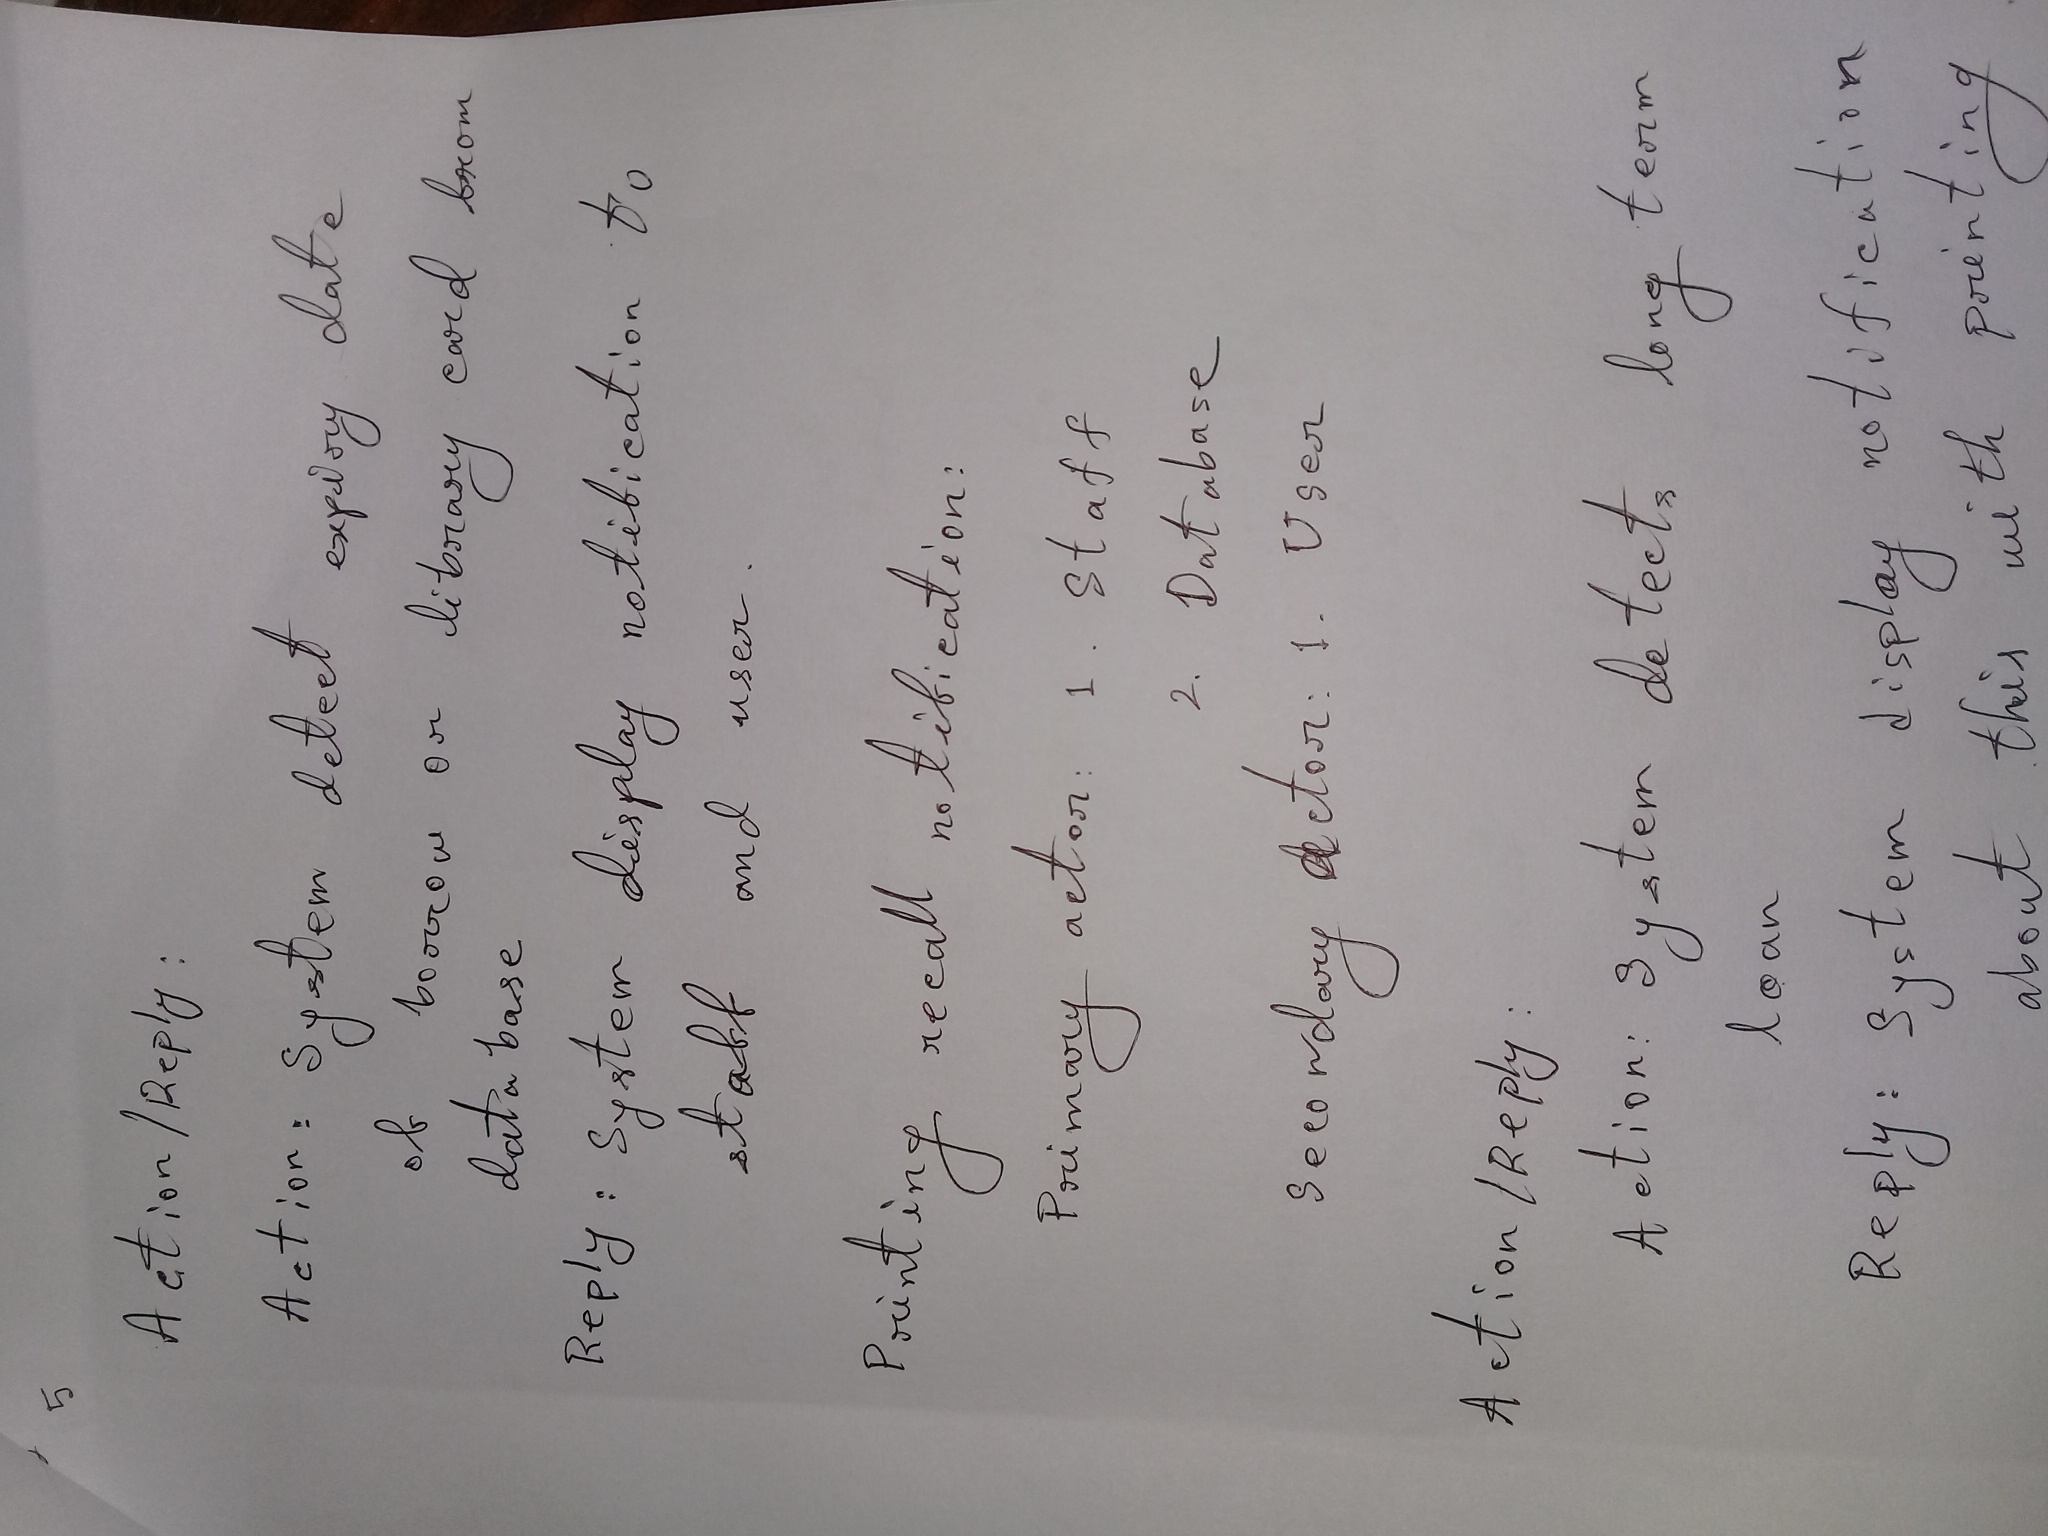 5
Action/Reply:
Action: System detect expiry date
of borrow or library card from
database
Reply: System display notification to
staff and user.
Printing recall notification:
Primary actor: 1. Staff
2. Database
Secondary actor: 1. User
Action/Reply:
Action: System detects long term
loan
Reply: System display notification
about this with printing